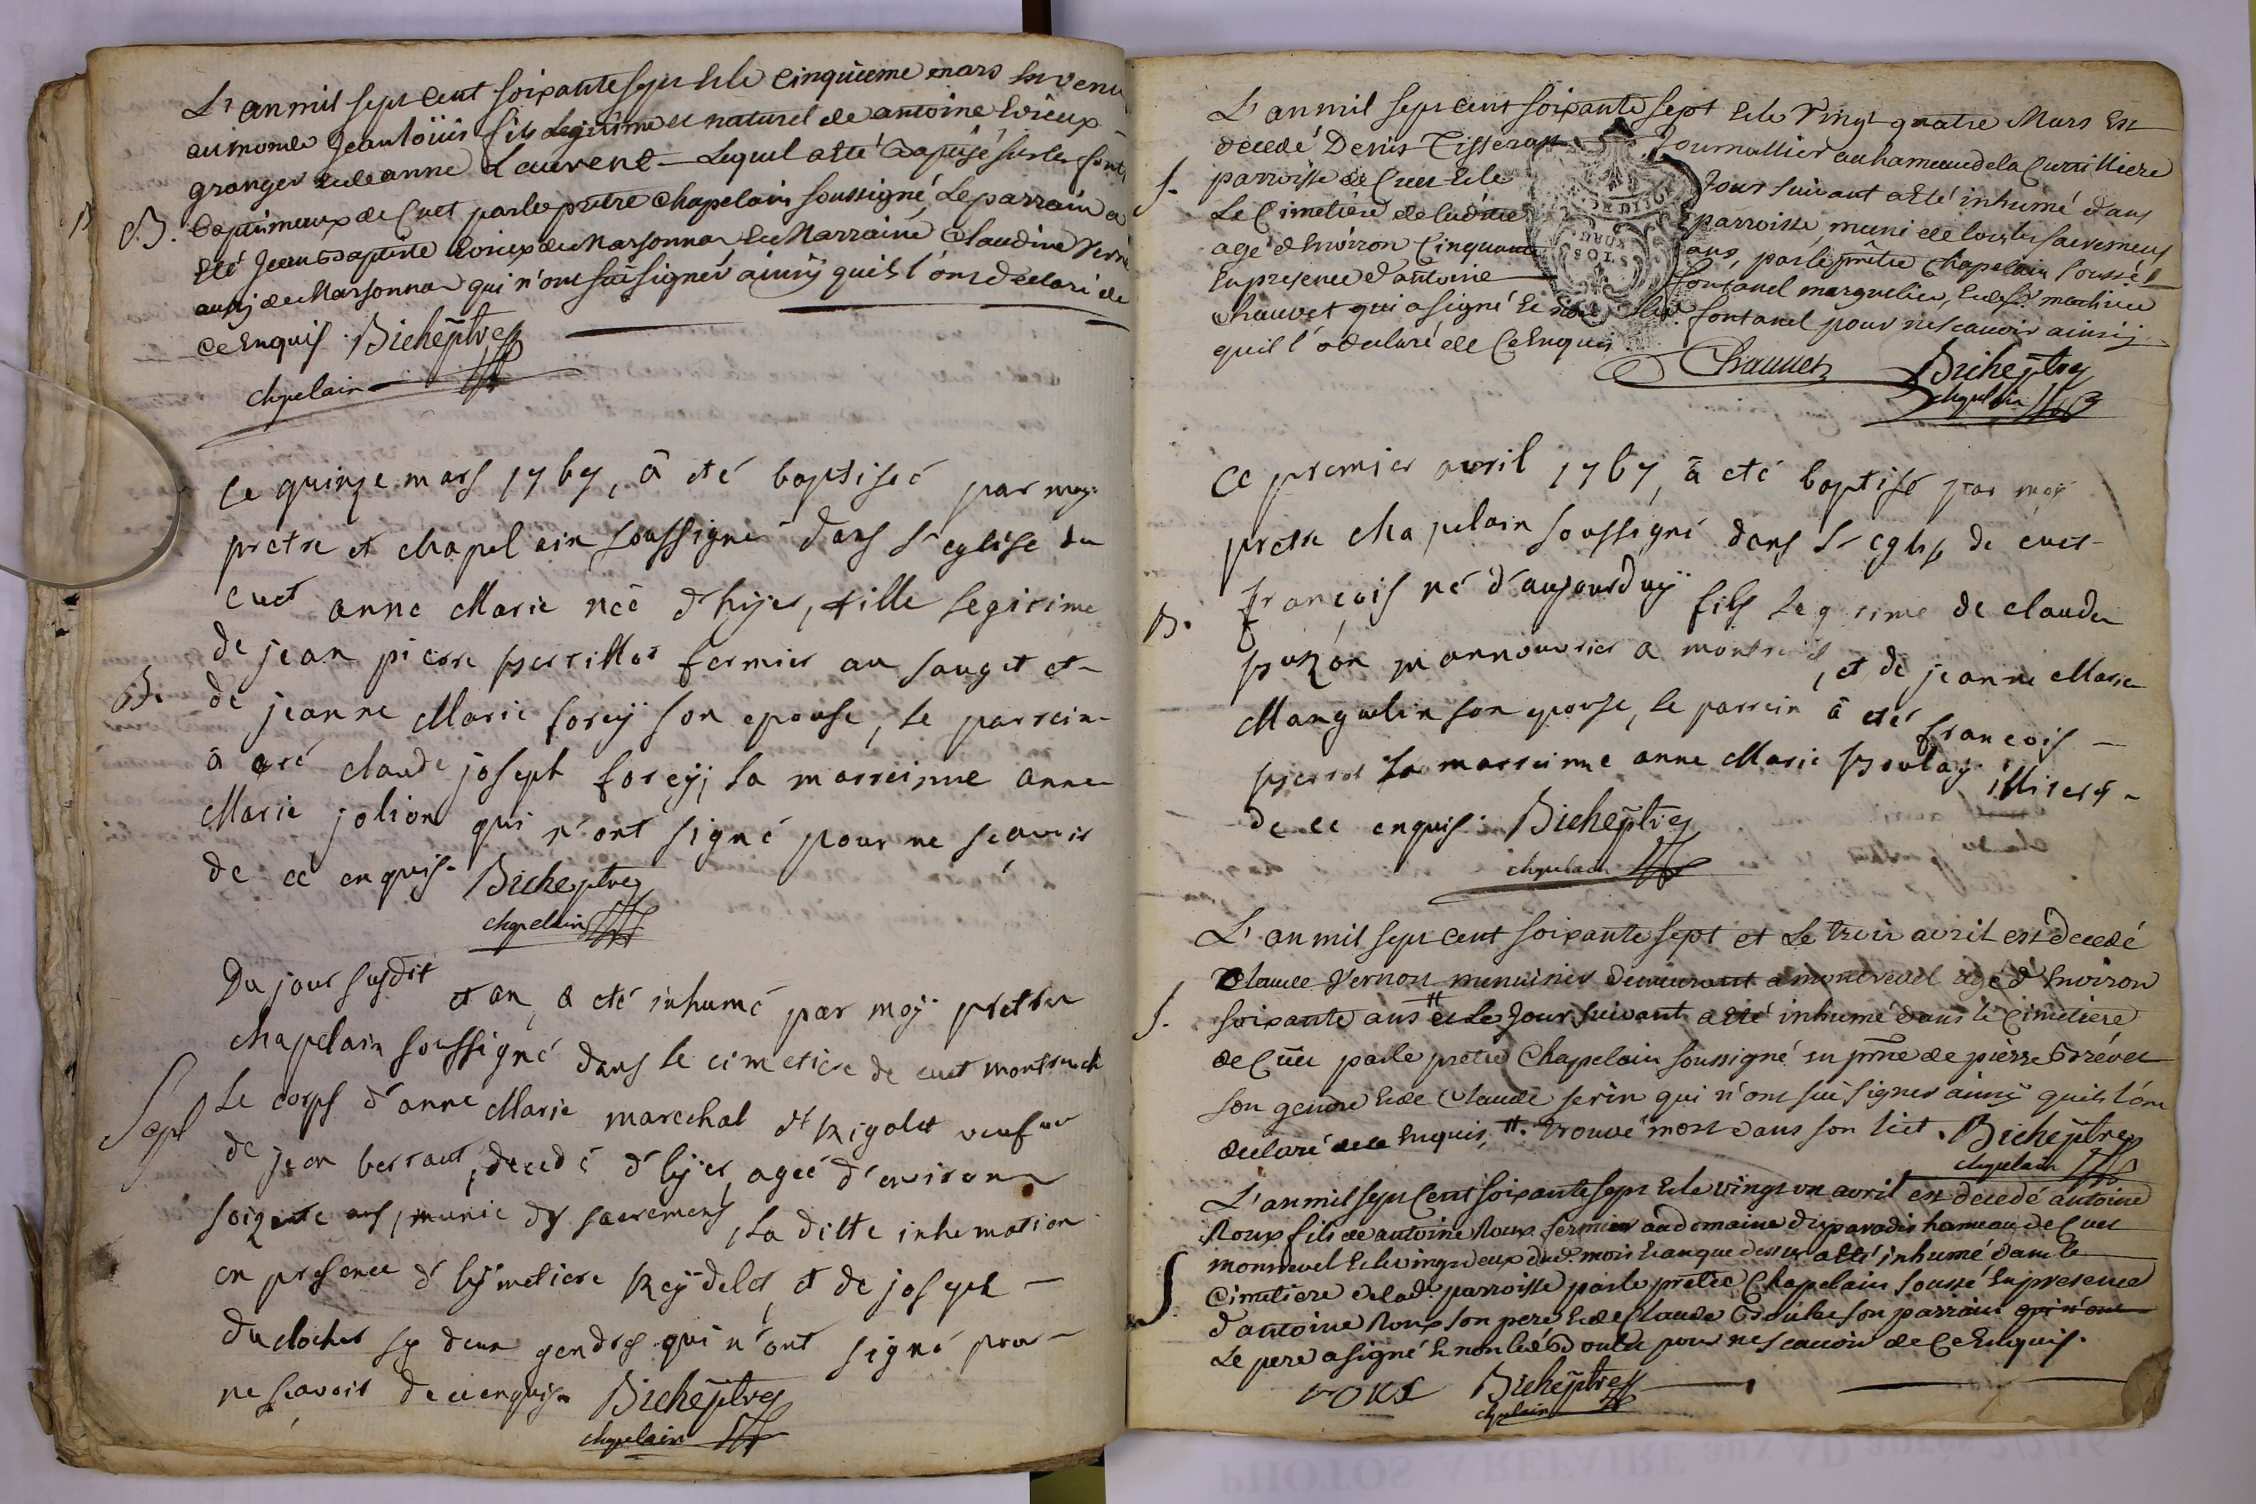 L'an mil sept cent soixante sept et le cinquieme mars est venu
au monde Jean loüis fils legitime et naturel de antoine
granger et de anne Laurent lequel a été Baptisé sur les fonts
B. Baptimeaux de Cuet par le pretre chapelain soussigné, Le parrain a
été Jean Baptiste de Marsonnas et la Marraine Claudine
aussy de Marsonnas qui n'ont sû signer ainsy quils l'ont déclaré de
Ce Enquis. Biche ptre
chpelain
Ce quinze mars 1767, à eté baptiseé par moy
pretre et chapelain soussigné dans l'eglise de
cuet anne Marie neé d'hyer, fille legitime
de jean pierre perrillat fermier au sauget et
B. de jeanne Marie forey son epouse, le parrein
à eté claude joseph forey, la marreinne anne
Marie jolion qui n'ont signé pour ne scavoir
de ce enquis. Biche ptre
chpelain
Du jour susdit et an, a eté inhumé par moy pretre
chapelain soussigné dans le cimetiere de cuet
Sepl Le corps d'anne Marie marechal
de jean berraut, decedé d'hyer, ageé d'environ
soixante ans, munie des sacremens, la ditte inhumation
en presence d' et de joseph
du clocher ses deux gendres qui n'ont signé pour
ne scavoir de ce enquis Biche ptre
chpelain
L'an mil sept cent soixante sept et le vingt quatre Mars est
decedé Denis Tisserant Journallier au hameau de la Curtilliere
S. parroisse de Cuet et le Jour suivant a eté inhumé dans
Le Cimetiere de ladite parroisse, muni de tous les sacremens
agé d'Environ Cinquante ans, par le prêtre Chapelain soussé
En presence d'antoine fontanel marguelier, et de
Chauvet qui a signé et non fontanel pour ne scavoir ainsy
quil l'a declaré de Ce Enquis
Chauuet Biche ptre
chpelain
Ce premier avril 1767, à eté baptisé par moy
pretre chapelain soussigné dans l'eglise de cuet
B. françois né d'aujourduy fils legitime de claude
puzon mannouvrier a montrevel, et de jeanne Marie
Manguelin son epouse, le parrein à eté françois
perrot la marreinne anne Marie illiterés
de ce enquis. Biche ptre
chpelain
L'an mil sept cent soixante sept et Le trois avril est decedé
Claude Vernon menuisier demeurant a montrevel agé d'Environ
S. soixante ans # et Le Jour suivant a eté inhumé dans le Cimetiere
de Cuet par le pretre Chapelain soussigné en pnce de pierre
son gendre et de Claude serin qui n'ont sü signer ainsy quils l'ont
declaré de ce Enquis, #. trouvé mort dans son lict. Biche ptre
chpelain
L'an mil sept Cent soixante sept et le vingt un avril est decedé antoine
Roux fils de antoine Roux fermier au domaine du paradis hameau de Cuet
montrevel et le vingt deux dud. mois et an que dessus a eté inhumé dans le
S Cimetiere de lad. parroisse par le prêtre Chapelain soussé En presence
d'antoine Roux son pere et de Claude son parrain qui n'ont
Le pere a signé et non led. pour ne scavoir de Ce Enquis.
roux Biche ptre
chpelain